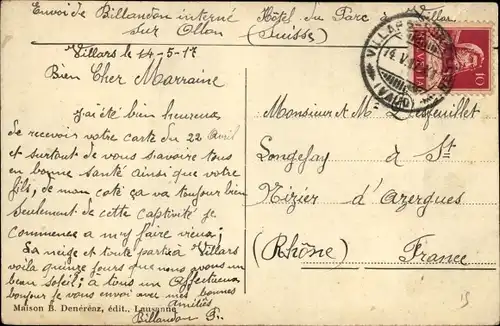 Envoi de Billandon interné Hôtel du Parc à Villar
sur Ollon (Suisse)
Villars le 14-5-17
Bien Cher Marraine
j'ai été bien heureux
de recevoir votre carte du 22 Avril
et surtout de vous savoire tous
en bonne santé ainsi que votre
fils, de mon coté ça va toujour bien
seulement de cette captivité je
commence a m'y faire vieux;
La neige et toute partie à Villars
voila quinze jours que nous avons un
beau soleil; a tous un Affectueux
bonjour je vous envoi avec mes bonnes
amitiés
Billandon P.
Maison B. Denéréaz, édit., Lausanne
VILLARS
14 V
(VAUD)
HELVETIA
10
Monsieur et M Desfeuillet
Longefay à St
Nizier d'Azergues
(Rhône) France